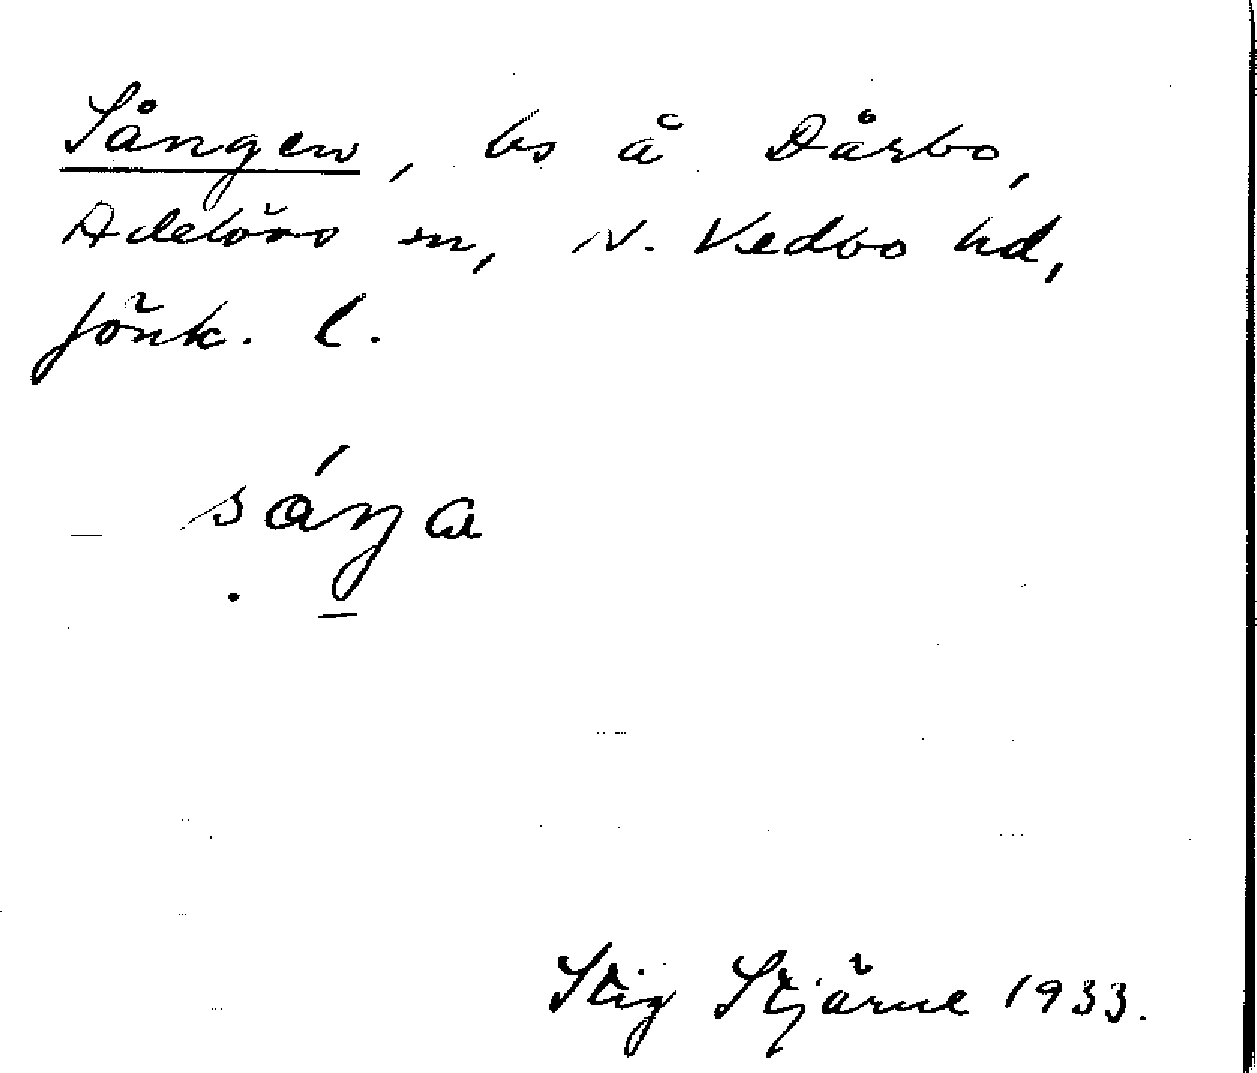 Sången, bs å Dårbo,
Adelövs sn, N. Vedbo hd,
Jönk. l.
sáŋa
Stig Stjärne 1933.